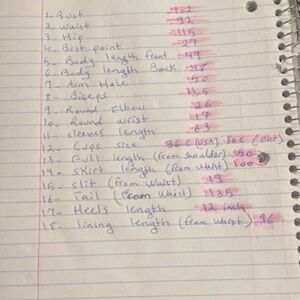 1- Bust 102
2- Waist 92
3- Hip 115
4- Bust point 27
5- Body length front 49
6- Body length Back 48
7- Arm Hole 50
8- Biceps
9- Round Elbow 26
10- Round wrist 17
11- sleeves length 63
12- Cups size 36 C (USA) 80 C (EUR)
13- Full length (from shoulder) 150
14- Skirt length (from waist) 100
15- Slit (from Waist) 19
16- Tail (from Waist) 135
17- Heels length 12 inch
18- lining length (from Waist) 96